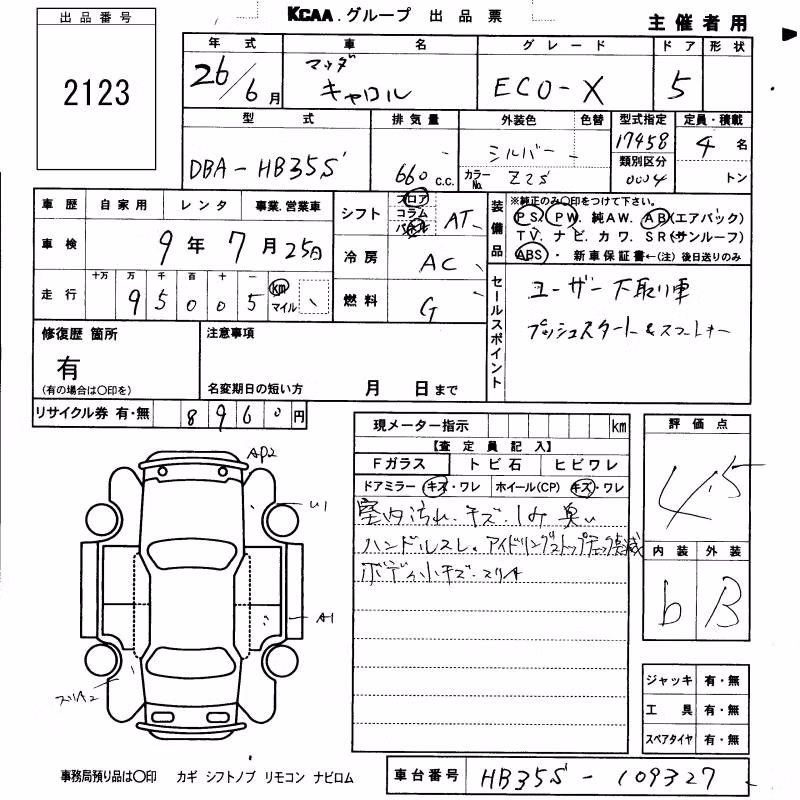 KCAA.グループ 出品票
主催者用
出品番号
2123
年式 車名 グレード ドア 形状
26/6月 マツダ キャロル ECO-X 5
型式 排気量 外装色 色替 型式指定 定員・積載
DBA-HB35S 660 c.c. シルバー 17458 4名
カラーNo. Z2S 類別区分 0004 トン
車歴 自家用 レンタ 事業.営業車
車検 9年7月25日
走行 十万 万 千 百 十 一 km マイル
95005
シフト フロア コラム パネル AT
冷房 AC
燃料 G
装備品 ※純正のみ〇印をつけて下さい。
PS. PW. 純AW. AB(エアバック)
TV. ナビ. カワ. SR(サンルーフ)
ABS ・ 新車保証書←(注) 後日送りのみ
セールスポイント
ユーザー下取り車
プッシュスタート&スマートキー
修復歴 箇所
有
(有の場合は〇印を)
注意事項
名変期日の短い方 月 日まで
リサイクル券 有・無 8960円
現メーター指示 km
【査定員記入】
Fガラス トビ石 ヒビワレ
ドアミラー キズ・ワレ ホイール(CP) キズ・ワレ
室内汚れ.キズ.しみ 臭い
ハンドルスレ。アイドリングストップチェック点滅
ボディ小キズ.スリA
評価点
4.5
内装 外装
b B
AP2
U1
A1
スリA2
ジャッキ 有・無
工具 有・無
スペアタイヤ 有・無
事務局預り品は〇印 カギ シフトノブ リモコン ナビロム
車台番号 HB35S-109327